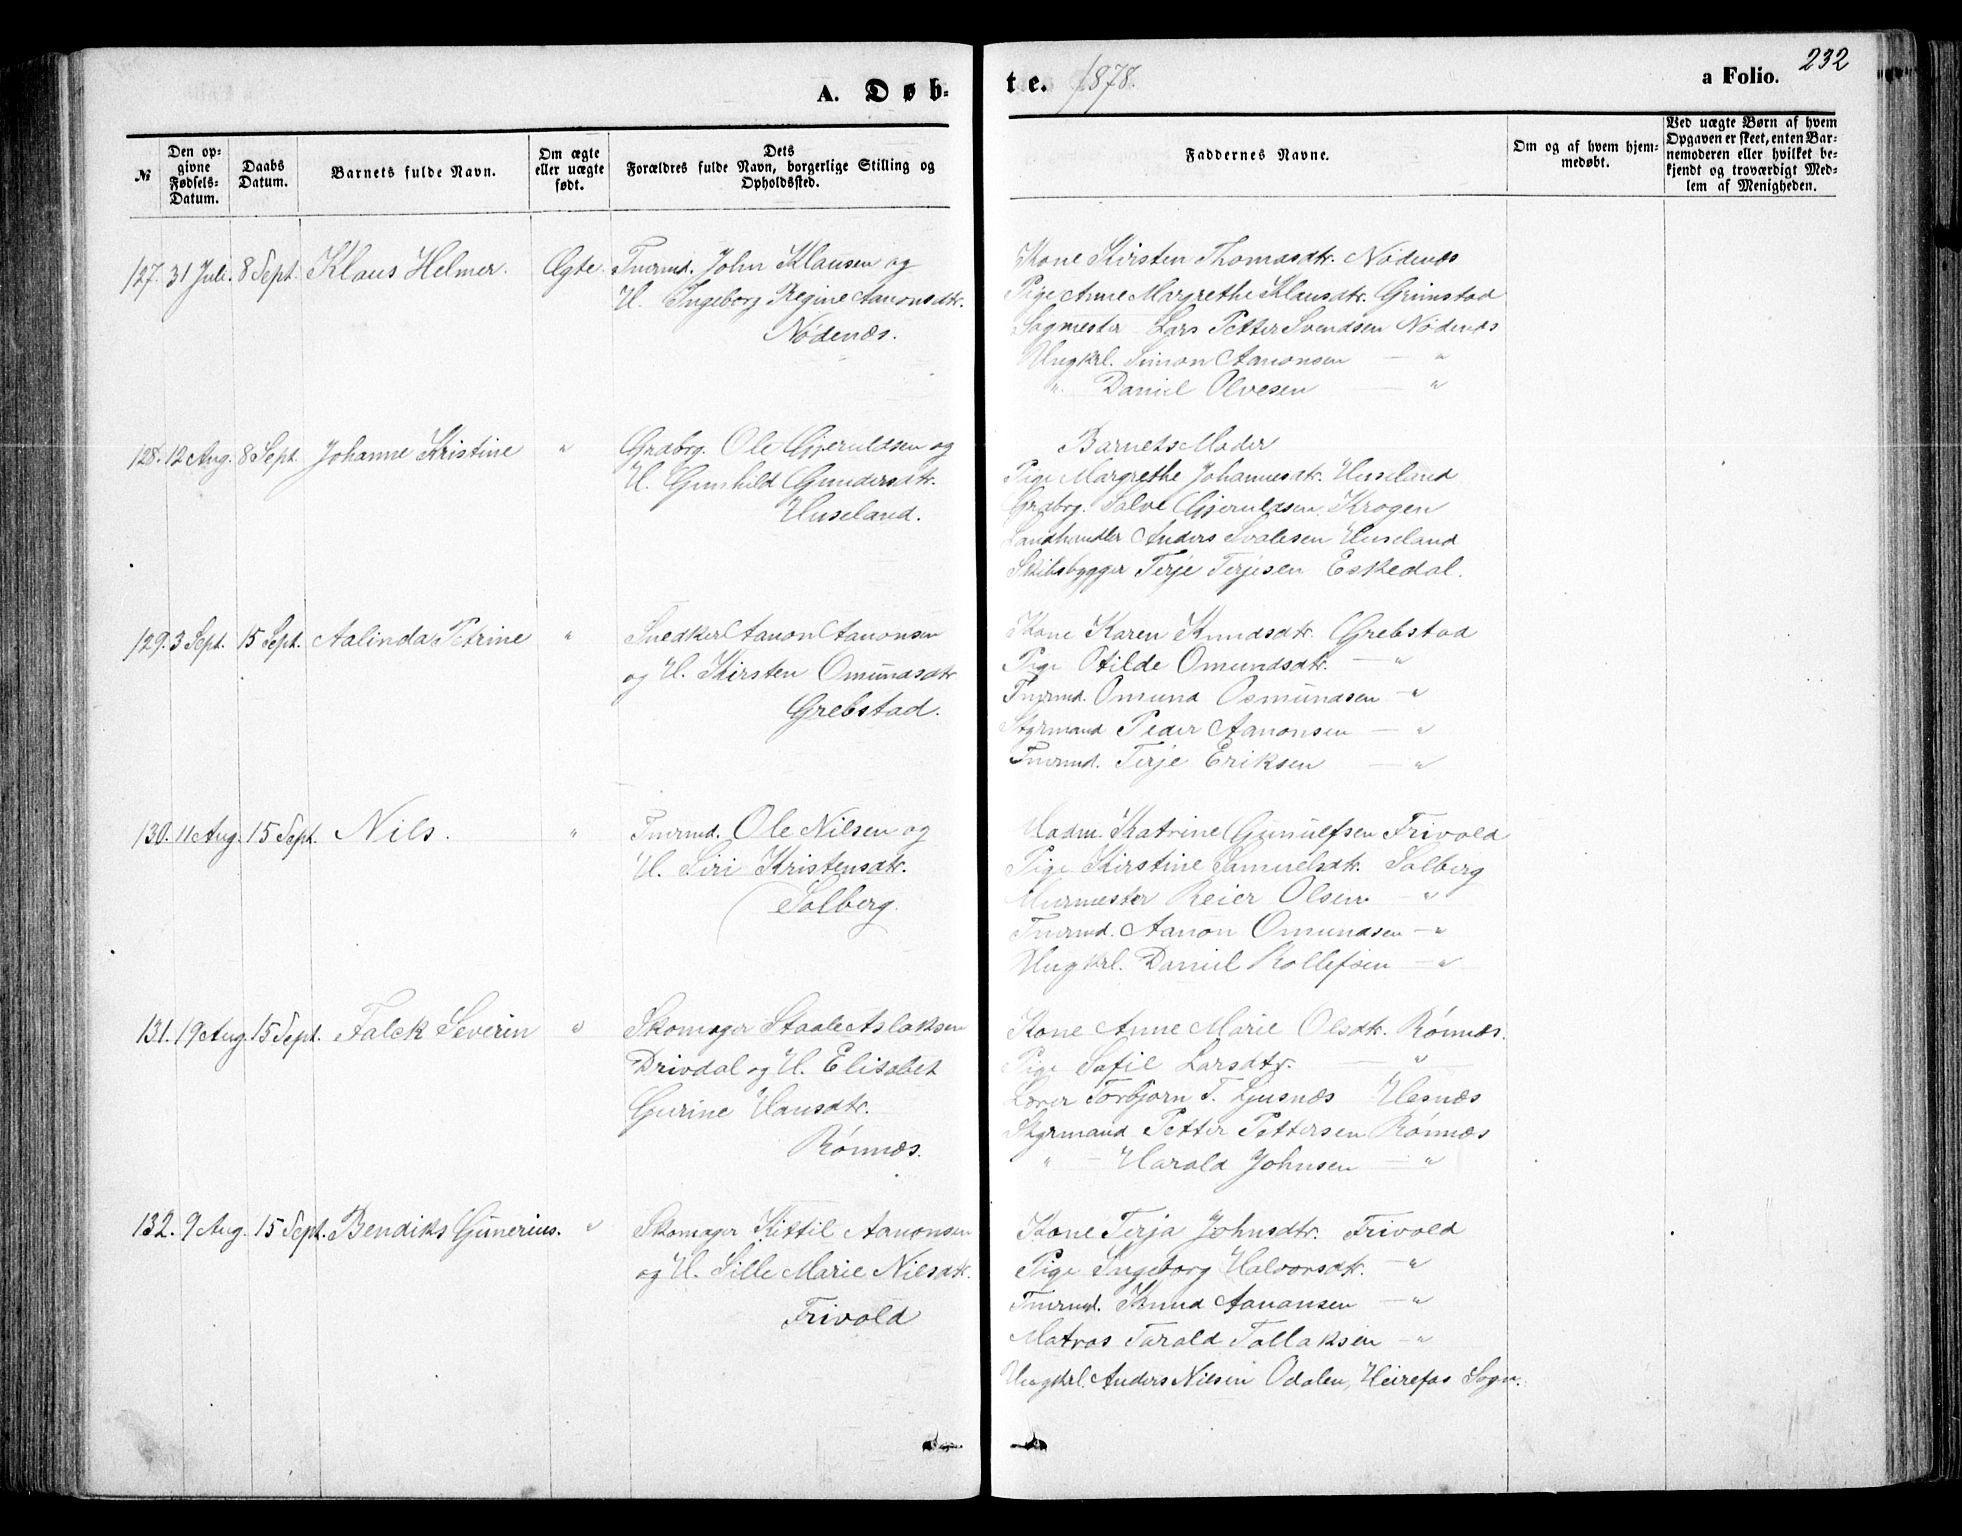 A. Døb-
te. 1878.
a Folio. 232
№
Den op-
givne
Fødsels-
Datum.
Daabs
Datum.
Barnets fulde Navn.
Om ægte
eller uægte
født.
Dets
Forældres fulde Navn, borgerlige Stilling og
Opholdssted.
Faddernes Navne.
Om og af hvem hjem-
medøbt.
Ved uægte Børn af hvem
Opgaven er skeet, enten Bar-
nemoderen eller hvilket be-
kjendt og troværdigt Med-
lem af Menigheden.
127. 31 Juli. 8 Sept. Klaus Helmer. Ægte. Tmrmd. John Klausen og
H. Ingeborg Regine Aanonsdtr.
Nødenæs.
Kone Kirsten Thomasdtr. Nødenæs
Pige Anne Margrethe Klausdtr. Grimstad
Sagmester Lars Petter Svendsen Nødenæs
Ungkrl. Simon Aanonsen — "
" Daniel Olvesen — "
128. 12 Aug. 8 Sept. Johanne Kristine " Grdbrg. Ole Gjeruldsen og
H. Gunhild Gundersdtr.
Huseland.
Barnets Moder
Pige Margrethe Johannesdtr. Huseland
Grdbrg. Salve Gjeruldsen Krogen
Landhandler Anders Svalesen Huseland
Skibsbygger Terje Terjesen Eskedal.
129. 3 Sept. 15 Sept. Aalinda Petrine " Snedker Aanon Aanonsen
og H. Kirsten Omundsdtr
Grebstad.
Kone Karen Knudsdtr. Grebstad
Pige Otilde Omundsdtr. — "
Tmrmd. Omund Osmundsen — "
Styrmand Peder Aanonsen — "
Tmrmd. Terje Eriksen — "
130. 11 Aug. 15 Sept. Nils. " Tmrmd. Ole Nilsen og
H. Siri Kristensdtr.
Solberg.
Madm. Katrine Gunulfsen Frivold
Pige Kirstine Samuelsdtr. Solberg
Murmester Reier Olsen — "
Tmrmd. Aanon Omundsen — "
Ungkrl. Daniel Rollefsen — "
131. 19 Aug. 15 Sept. Falck Severin " Skomager Staale Aslaksen
Drivdal og H. Elisabet
Gurine Hansdtr.
Rønnæs.
Kone Anne Marie Olsdtr. Rønnæs.
Pige Safil Larsdtr. — "
Lærer Torbjørn T. Ljusnæs Hesnæs
Styrmand Petter Pettersen Rønnæs
" — Harald Johnsen — "
132. 9 Aug. 15 Sept. Bendiks Gunerius. " Skomager Kittil Aanonsen
og H. Sille Marie Nilsdtr.
Frivold
Kone Terja Johnsdtr. Frivold
Pige Ingeborg Halvorsdtr. — "
Tmrmd. Knud Aanansen — "
Matros Tarald Tallaksen — "
Ungkrl. Anders Nilsen Odalen, Heirefos Sogn.